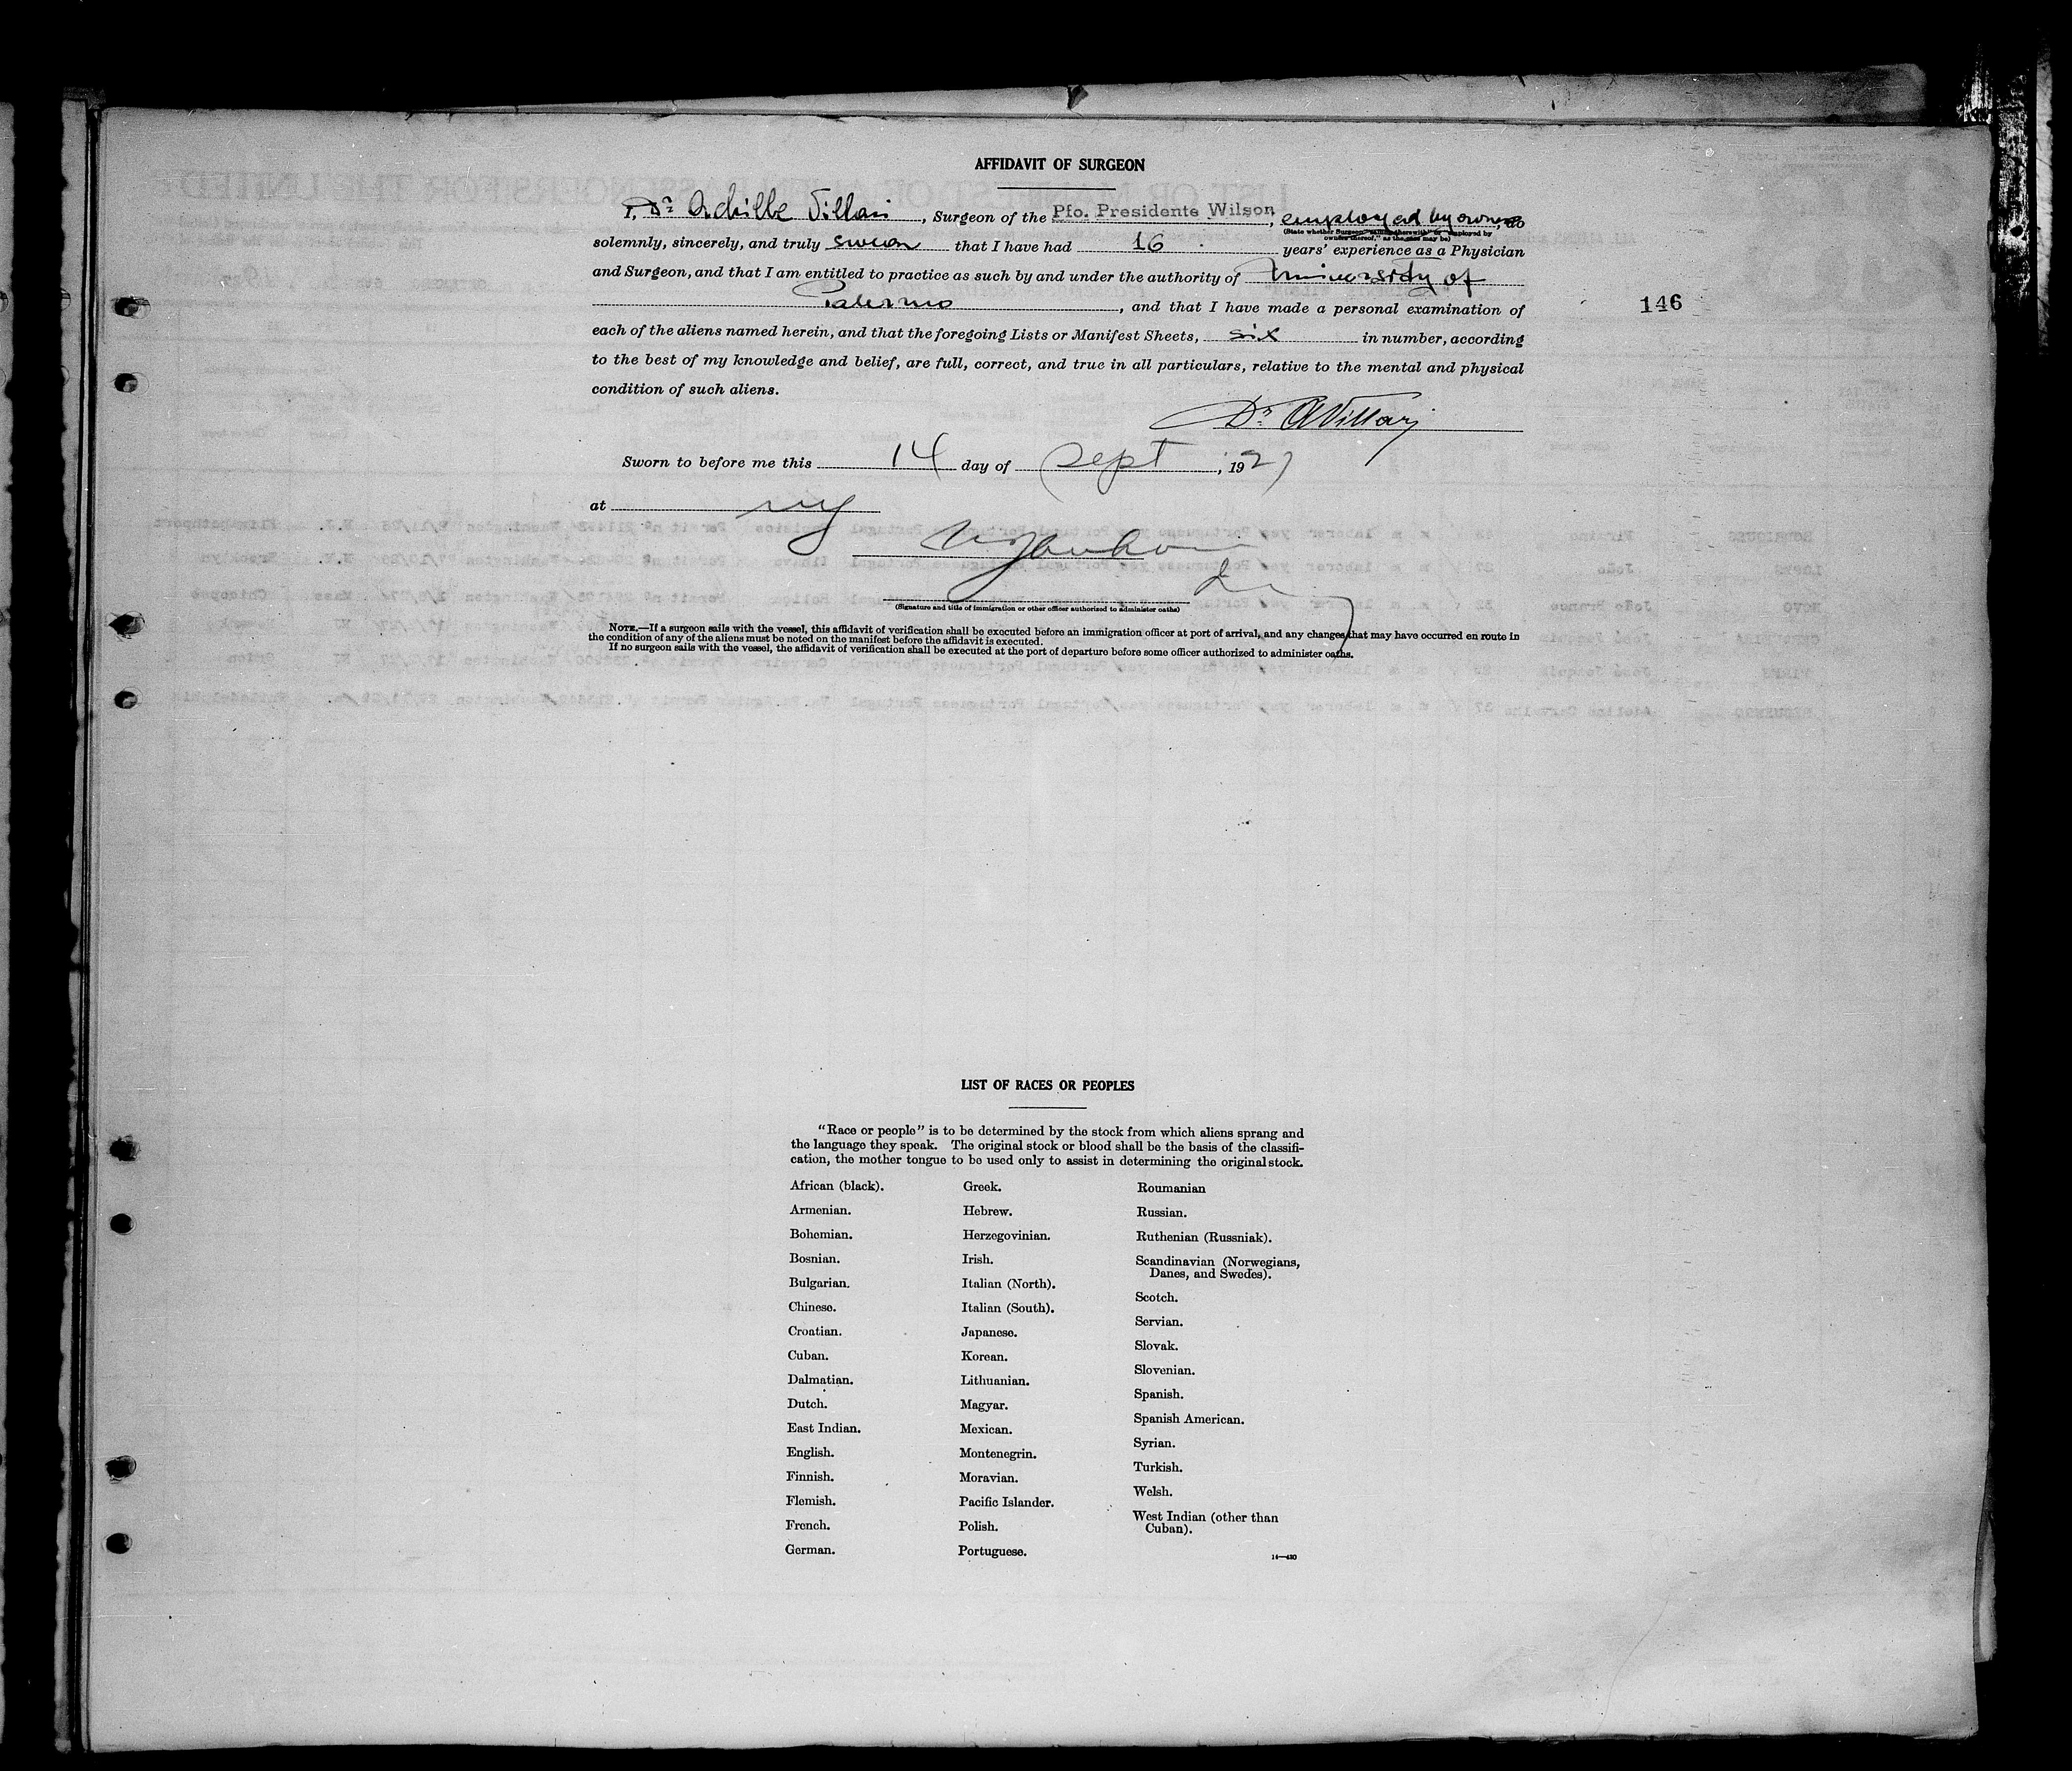 AFFIDAVIT OF SURGEON
I, Dr Achille Villari, Surgeon of the Pfo. Presidente Wilson, employed by owners, do
(State whether Surgeon "sailing therewith" or "employed by owners thereof," as the case may be)
solemnly, sincerely, and truly swear that I have had 16 years' experience as a Physician
and Surgeon, and that I am entitled to practice as such by and under the authority of University of
Palermo, and that I have made a personal examination of
146
each of the aliens named herein, and that the foregoing Lists or Manifest Sheets, six in number, according
to the best of my knowledge and belief, are full, correct, and true in all particulars, relative to the mental and physical
condition of such aliens.
Dr AVillari
Sworn to before me this 14 day of Sept, 1927
at NY
(Signature and title of immigration or other officer authorized to administer oaths)
NOTE.—If a surgeon sails with the vessel, this affidavit of verification shall be executed before an immigration officer at port of arrival, and any changes that may have occurred en route in
the condition of any of the aliens must be noted on the manifest before the affidavit is executed.
If no surgeon sails with the vessel, the affidavit of verification shall be executed at the port of departure before some officer authorized to administer oaths.
LIST OF RACES OR PEOPLES
"Race or people" is to be determined by the stock from which aliens sprang and
the language they speak. The original stock or blood shall be the basis of the classifi-
cation, the mother tongue to be used only to assist in determining the original stock.
African (black).
Armenian.
Bohemian.
Bosnian.
Bulgarian.
Chinese.
Croatian.
Cuban.
Dalmatian.
Dutch.
East Indian.
English.
Finnish.
Flemish.
French.
German.
Greek.
Hebrew.
Herzegovinian.
Irish.
Italian (North).
Italian (South).
Japanese.
Korean.
Lithuanian.
Magyar.
Mexican.
Montenegrin.
Moravian.
Pacific Islander.
Polish.
Portuguese.
Roumanian
Russian.
Ruthenian (Russniak).
Scandinavian (Norwegians,
Danes, and Swedes).
Scotch.
Servian.
Slovak.
Slovenian.
Spanish.
Spanish American.
Syrian.
Turkish.
Welsh.
West Indian (other than
Cuban).
14—430